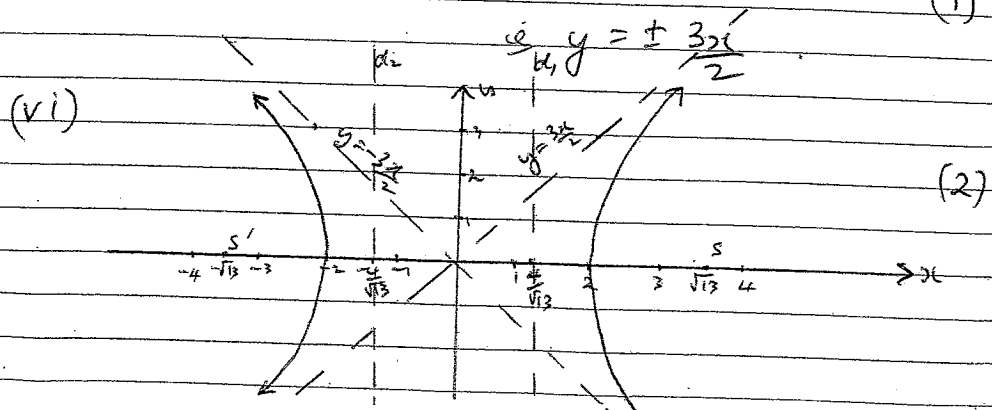 (1)
ie y = ± 3x/2
d₂ d₁
(vi)
y
3
y = -3x/2
y = 3x/2
2
(2)
1
S' S
-4 -√13 -3 -2 -4/√13 -1 1 4/√13 2 3 √13 4 x